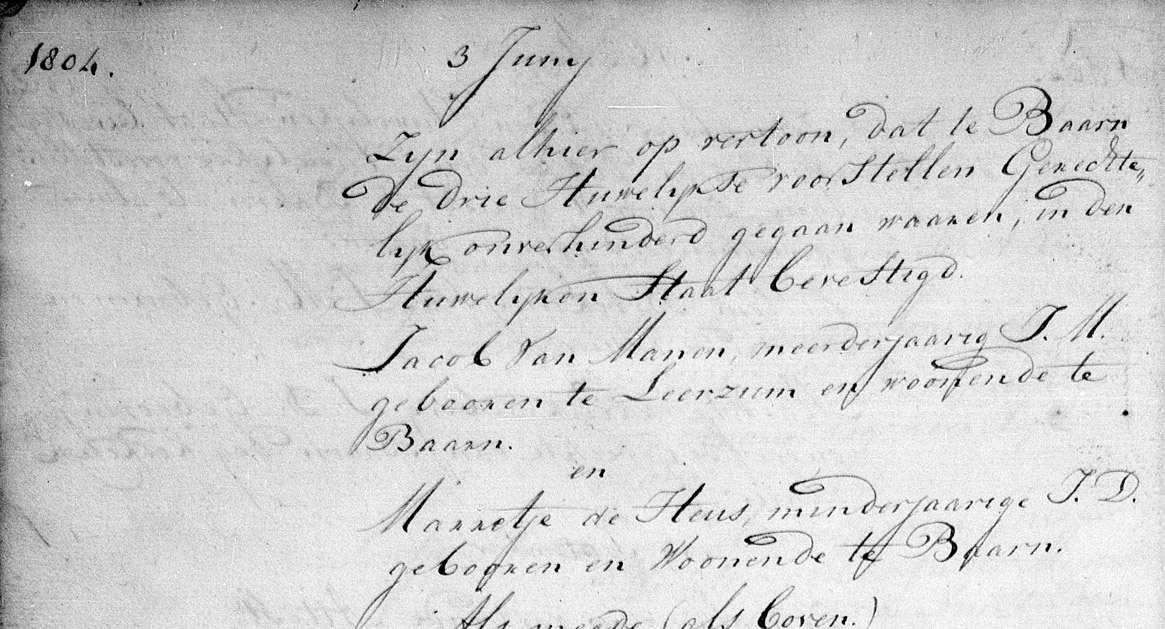 1804. 3 Juny
Zyn alhier op vertoon, dat te Baarn
de drie Huwelykse voorstellen Gerechte„
lyk onverhinderd gegaan waaren, in den
Huwelyken Staat bevestigd.
Jacob Van Manen, meerderjaarig J. M.
gebooren te Leerzum en woonende te
Baarn.
en
Marretje de Heus, minderjaarige J. D.
gebooren en Woonende te Baarn.
Als meede (als boven.)